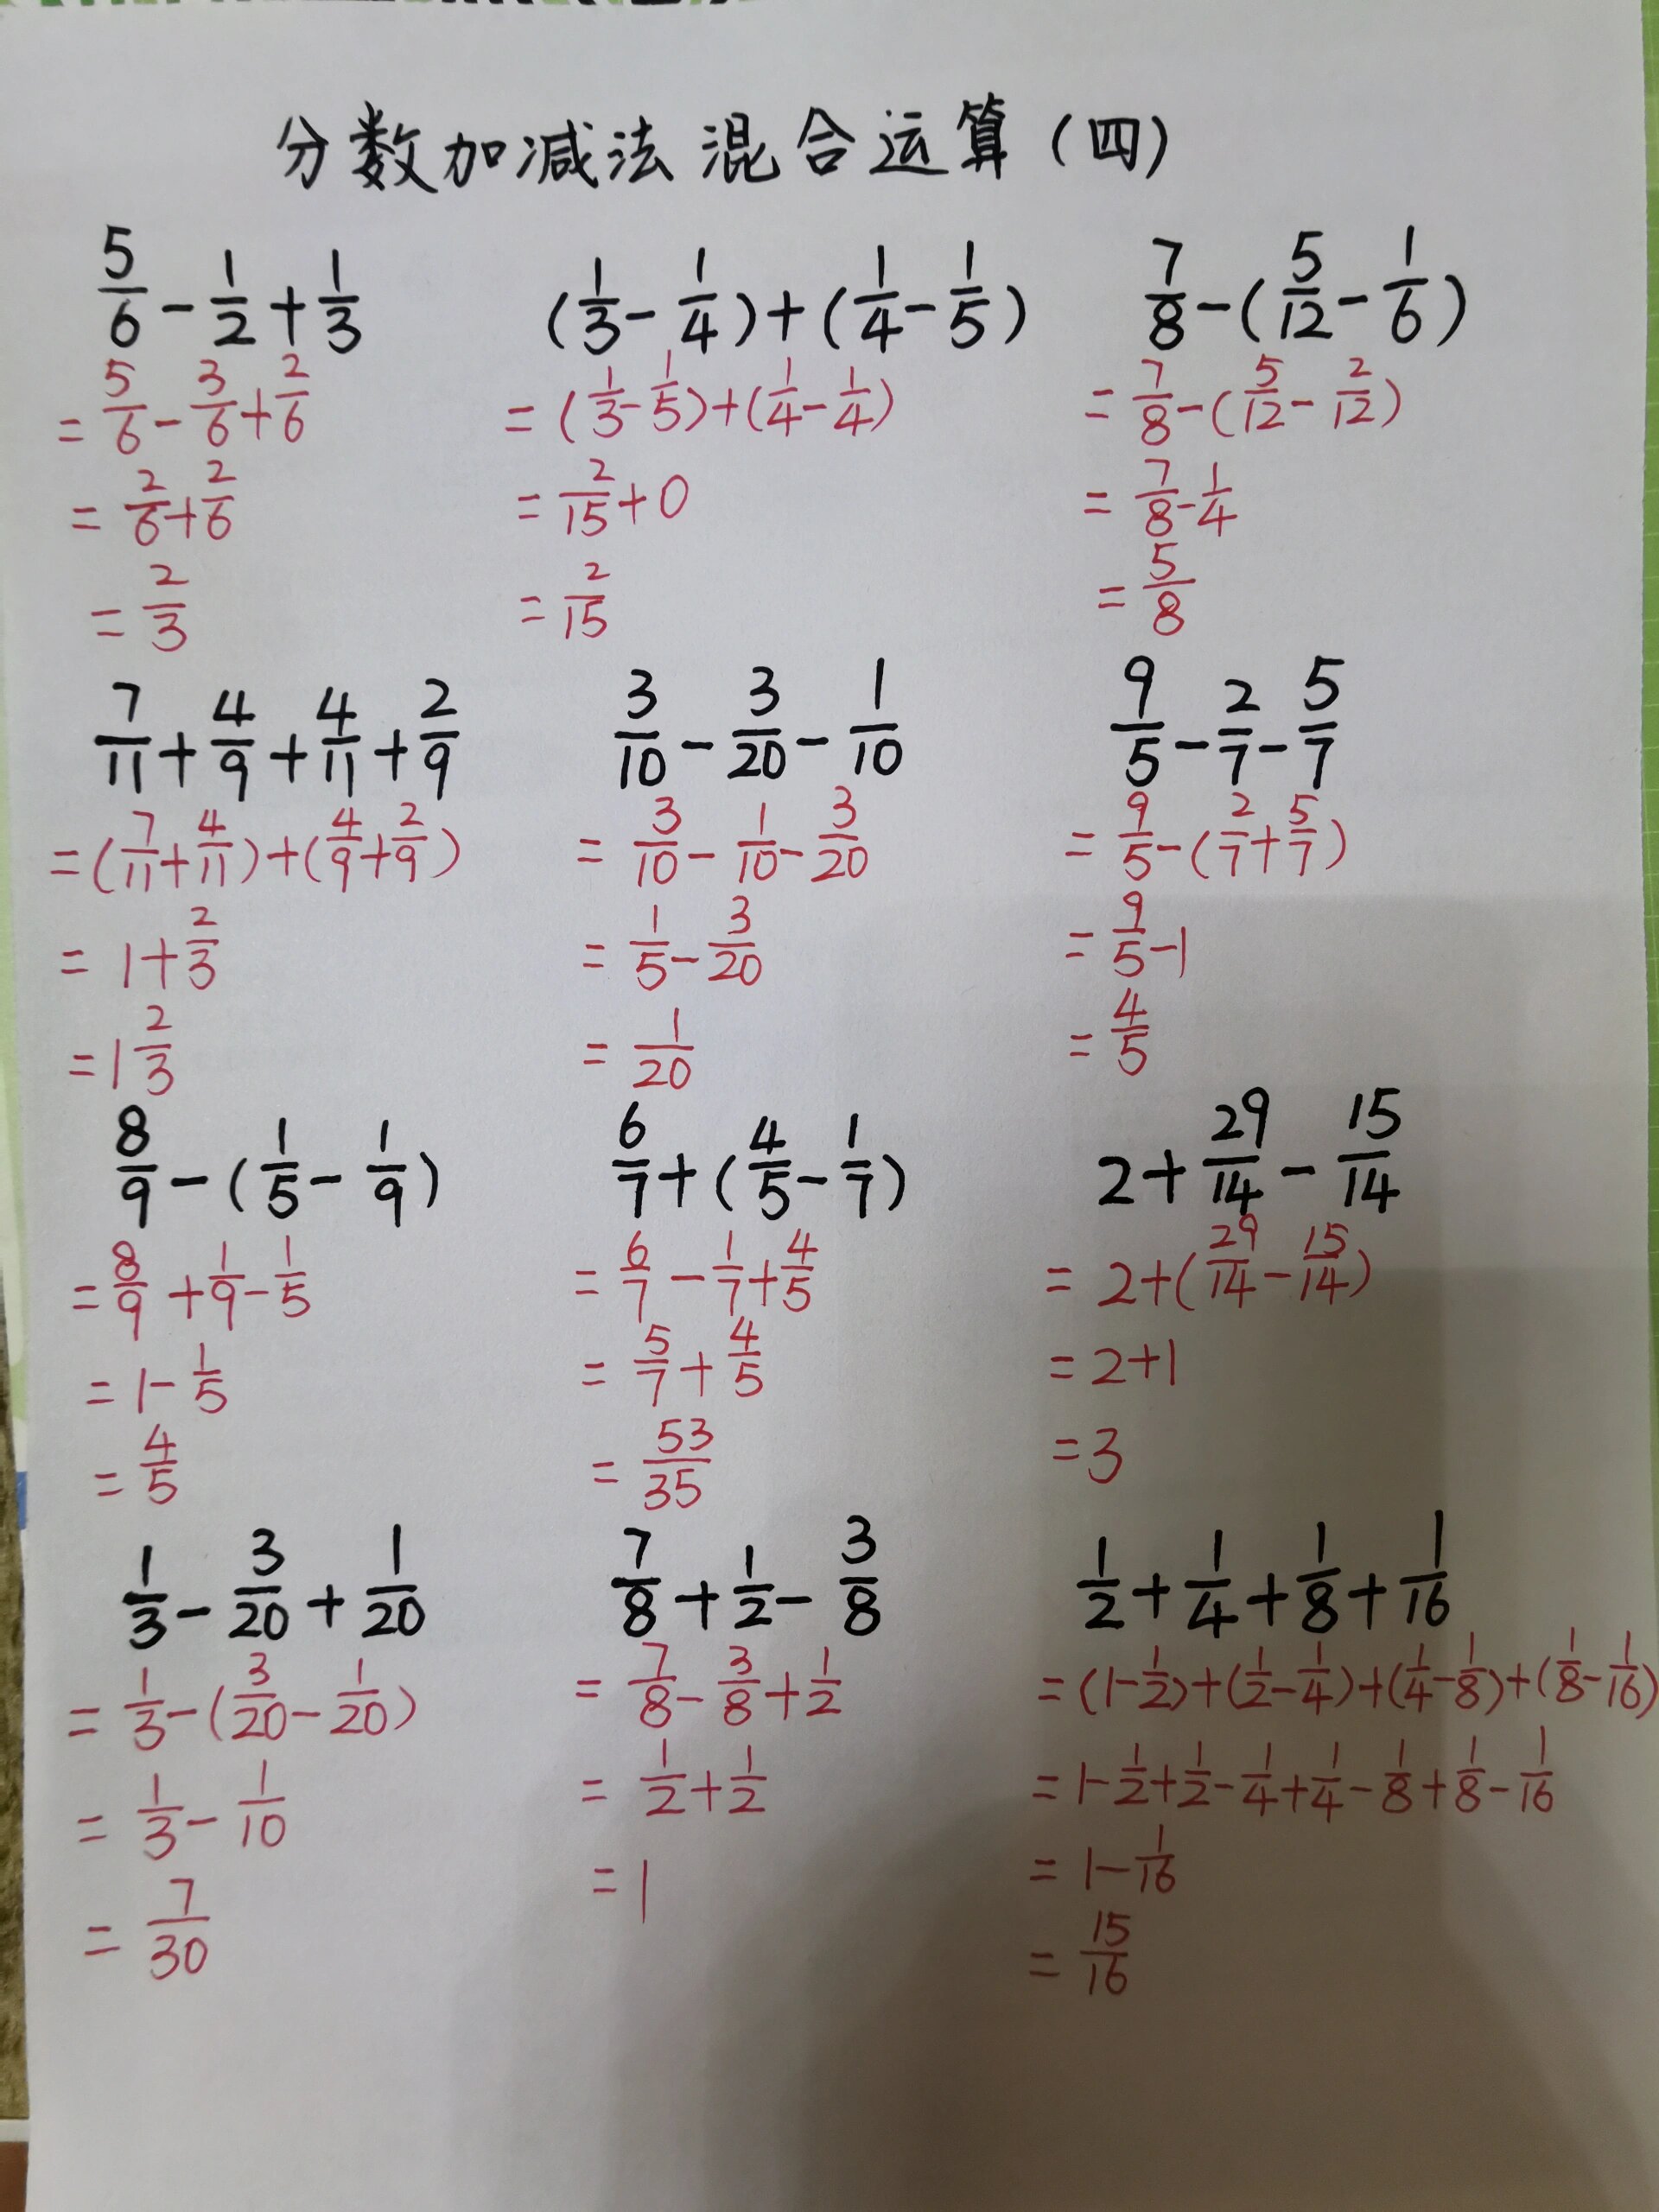 分数加减法混合运算(四)
5/6 - 1/2 + 1/3
= 5/6 - 3/6 + 2/6
= 2/6 + 2/6
= 2/3
(1/3 - 1/4) + (1/4 - 1/5)
= (1/3 - 1/5) + (1/4 - 1/4)
= 2/15 + 0
= 2/15
7/8 - (5/12 - 1/6)
= 7/8 - (5/12 - 2/12)
= 7/8 - 1/4
= 5/8
7/11 + 4/9 + 4/11 + 2/9
= (7/11 + 4/11) + (4/9 + 2/9)
= 1 + 2/3
= 1 2/3
3/10 - 3/20 - 1/10
= 3/10 - 1/10 - 3/20
= 1/5 - 3/20
= 1/20
9/5 - 2/7 - 5/7
= 9/5 - (2/7 + 5/7)
= 9/5 - 1
= 4/5
8/9 - (1/5 - 1/9)
= 8/9 + 1/9 - 1/5
= 1 - 1/5
= 4/5
6/7 + (4/5 - 1/7)
= 6/7 - 1/7 + 4/5
= 5/7 + 4/5
= 53/35
2 + 29/14 - 15/14
= 2 + (29/14 - 15/14)
= 2 + 1
= 3
1/3 - 3/20 + 1/20
= 1/3 - (3/20 - 1/20)
= 1/3 - 1/10
= 7/30
7/8 + 1/2 - 3/8
= 7/8 - 3/8 + 1/2
= 1/2 + 1/2
= 1
1/2 + 1/4 + 1/8 + 1/16
= (1 - 1/2) + (1/2 - 1/4) + (1/4 - 1/8) + (1/8 - 1/16)
= 1 - 1/2 + 1/2 - 1/4 + 1/4 - 1/8 + 1/8 - 1/16
= 1 - 1/16
= 15/16